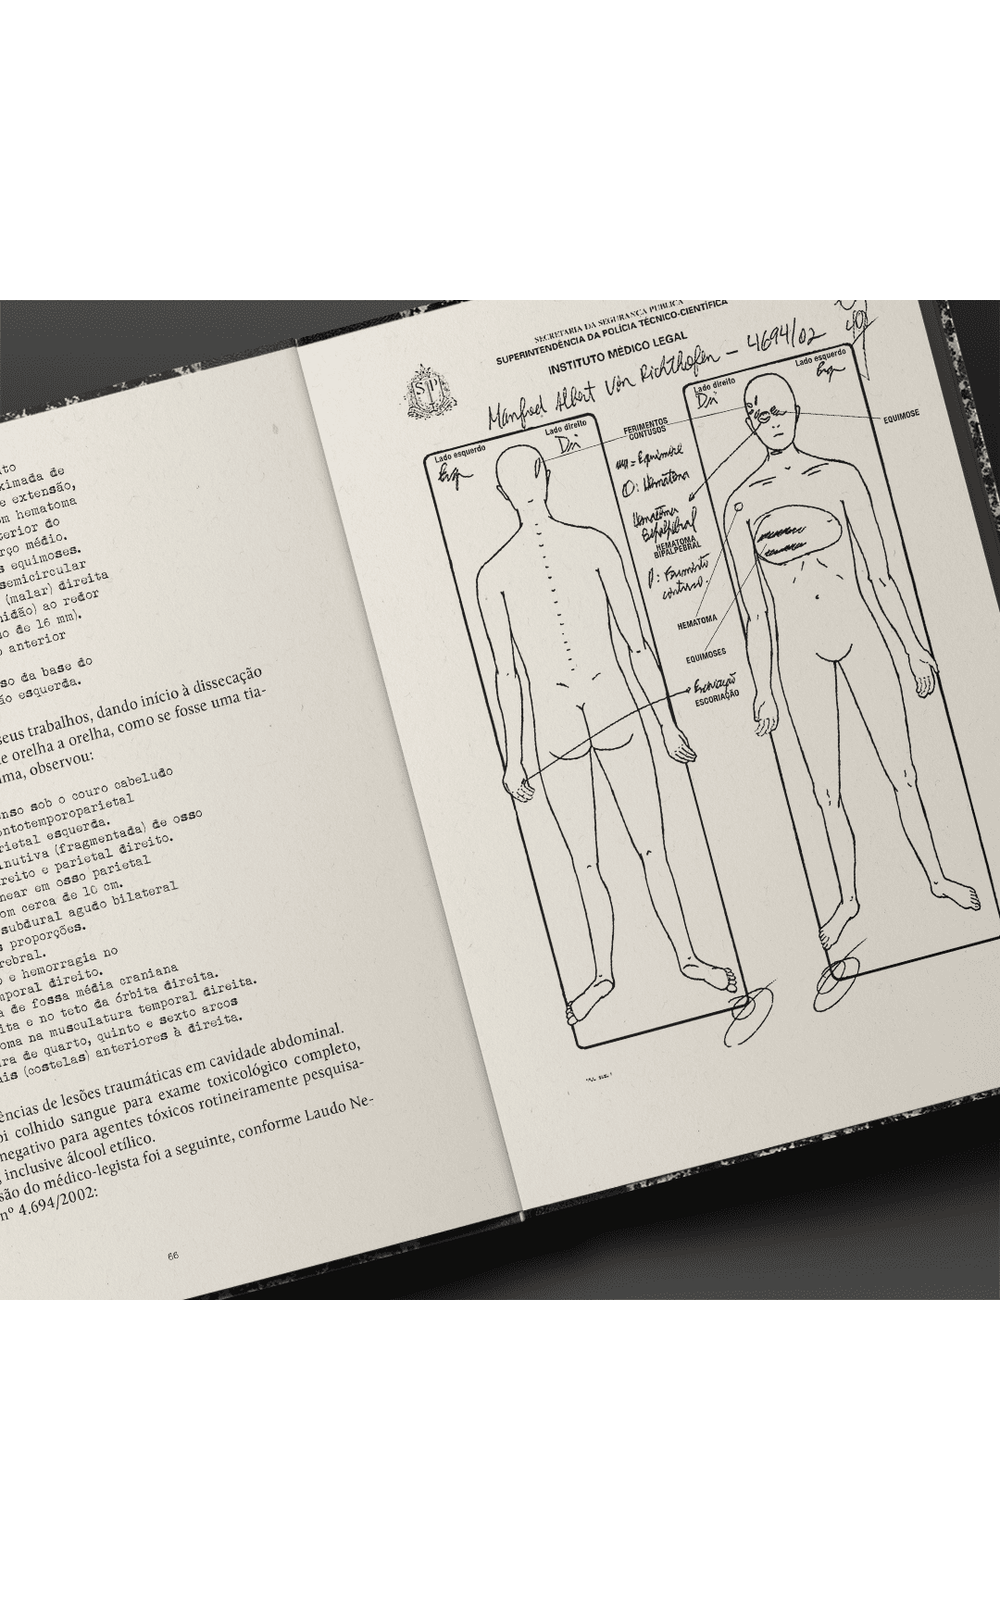 ato
ximada de
e extensão,
om hematoma
terior do
rço médio.
s equimoses.
semicircular
(malar) direita
nidão) ao redor
o de 16 mm).
o anterior
so da base do
ão esquerda.
seus trabalhos, dando início à dissecação
e orelha a orelha, como se fosse uma tia-
ma, observou:
nso sob o couro cabeludo
ontotemporoparietal
rietal esquerda.
inutiva (fragmentada) de osso
reito e parietal direito.
near em osso parietal
om cerca de 10 cm.
subdural agudo bilateral
s proporções.
rebral.
o e hemorragia no
mporal direito.
a de fossa média craniana
ita e no teto da órbita direita.
oma na musculatura temporal direita.
ra de quarto, quinto e sexto arcos
ais (costelas) anteriores à direita.
ências de lesões traumáticas em cavidade abdominal.
oi colhido sangue para exame toxicológico completo,
negativo para agentes tóxicos rotineiramente pesquisa-
, inclusive álcool etílico.
são do médico-legista foi a seguinte, conforme Laudo Ne-
nº 4.694/2002:
66
SECRETARIA DA SEGURANÇA PÚBLICA
SUPERINTENDÊNCIA DA POLÍCIA TÉCNICO-CIENTÍFICA
INSTITUTO MÉDICO LEGAL
Manfred Albert Von Richthofen - 4694/02
SPTC
Lado esquerdo
Esq
Lado direito
Dir
Lado direito
Dir
Lado esquerdo
Esq
FERIMENTOS
CONTUSOS
EQUIMOSE
= Equimose
: Hematoma
Hematoma
Bipalpebral
HEMATOMA
BIPALPEBRAL
: Ferimento
contuso.
HEMATOMA
EQUIMOSES
Escoriação
ESCORIAÇÃO